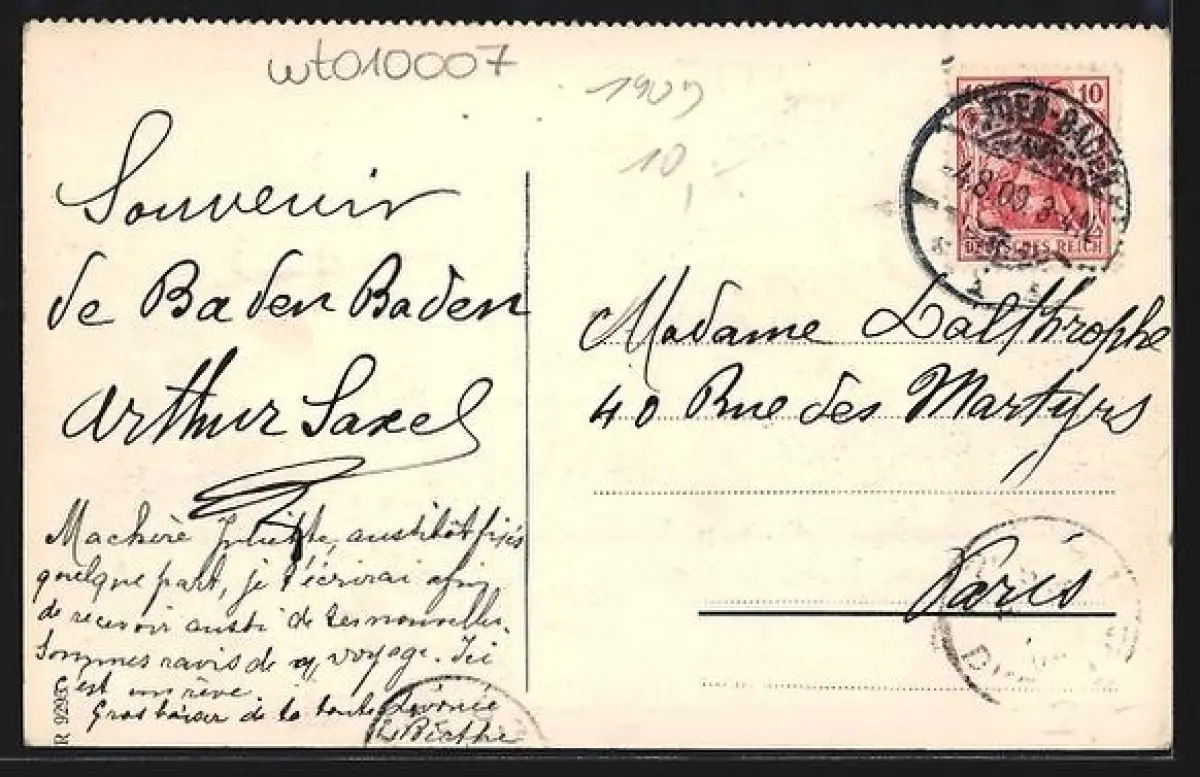 wt010007
1909
10,-
10 10
BADEN-BADEN
4.8.09. 3-4N
DEUTSCHES REICH
Souvenir
de Baden Baden
Arthur Saxel
Madame Dalthrophe
40 Rue des Martyrs
Paris
Ma chère Juliette, aussitôt fixés
quelque part, je t'écrirai afin
de recevoir aussi de tes nouvelles.
Sommes ravis de voyage. Ici
c'est un rêve.
Gros baiser de ta toute dévouée
Berthe
R 929